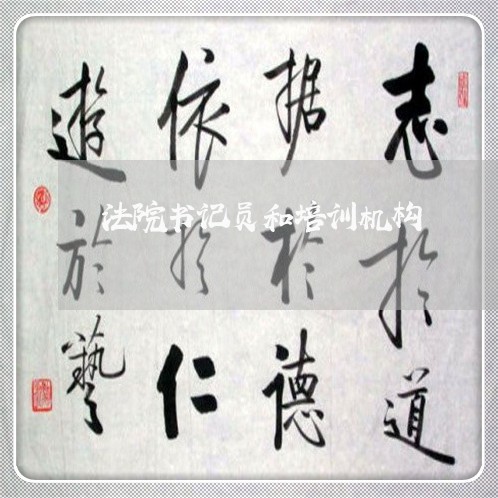 志於道
据於德
依於仁
遊於藝
法院书记员和培训机构